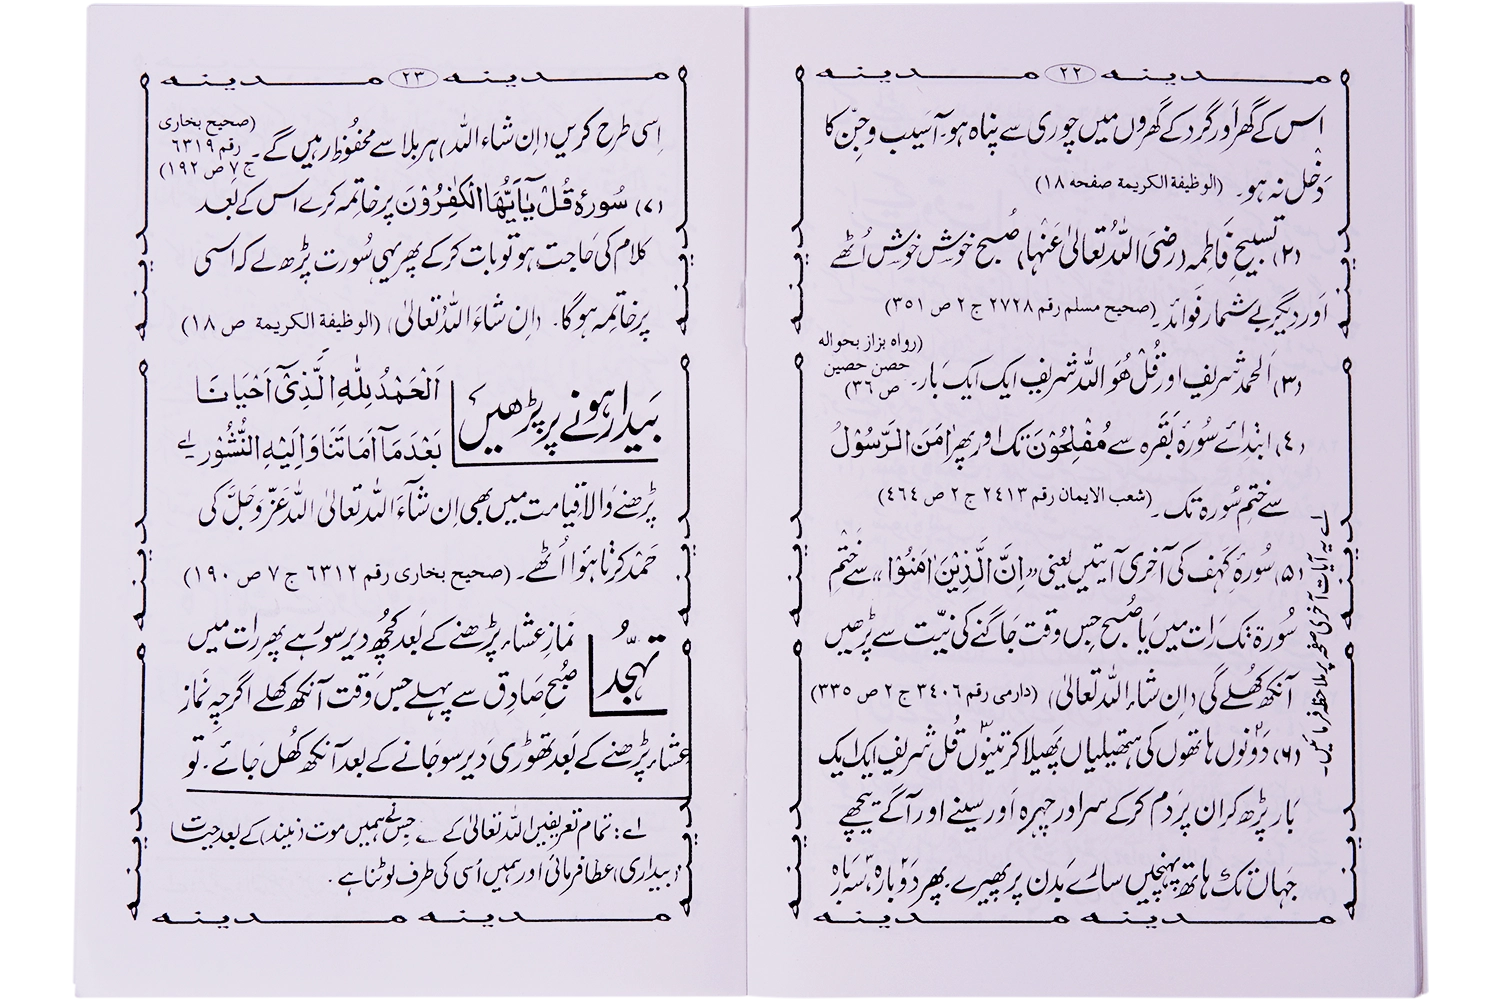 مدینہ مدینہ ٢٢ مدینہ مدینہ
اس کے گھر اور گرد کے گھروں میں چوری سے پناہ ہو۔ آسیب و جِنّ کا
دَخل نہ ہو۔ (الوظیفة الکریمة صفحه ١٨)
(٢) تسبیحِ فَاطِمہ (رضیَ اللّٰہُ تعالیٰ عَنْہا) صُبح خوش خوش اُٹھے
اَور دیگر بے شمار فَوائد۔ (صحیح مسلم رقم ٢٧٢٨ ج ٢ ص ٣٥١)
(٣) اَلحمد شریف اور قُلْ ھُوَ اللّٰہ شریف ایک ایک بَار۔ (رواه بزاز بحواله حصن حصین ص ٣٦)
(٤) ابتدائے سُورۂ بَقَرہ سے مُفْلِحُوْنَ تک اور پھر اٰمَنَ الرَّسُوْلُ
سے ختمِ سُورۃ تک۔ (شعب الایمان رقم ٢٤١٣ ج ٢ ص ٤٦٤)
(۵) سُورۂ کَہف کی آخری آیتیں یعنی "اِنَّ الَّذِیْنَ اٰمَنُوْا" سے ختمِ
سُورۃ تک رَات میں یَا صُبح جِس وقت جَاگنے کی نیّت سے پڑھیں
آنکھ کُھلے گی (اِن شاء اللّٰہ تعالیٰ) (دارمی رقم ٣٤٠٦ ج ٢ ص ٣٣٥)
(٦) دَونوں ہاتھوں کی ہتھیلیاں پَھیلا کر تینوں قُل شریف ایک ایک
بَار پڑھ کر ان پر دَم کر کے سر اور چہرہ اَور سینے اور آگے پیچھے
جہاں تک ہاتھ پہنچیں سارے بَدن پر پھیرے۔ پھر دَوبارہ، سَہ بارَہ
لے یہ آیات آخری صفحہ پر ملاحظہ فرمائیں۔
مدینہ مدینہ
مدینہ مدینہ ٢٣ مدینہ مدینہ
اِسی طرح کریں (اِن شاء اللّٰہ) ہر بلا سے محفُوظ رہیں گے۔ (صحیح بخاری رقم ٦٣١٩ ج ٧ ص ١٩٢)
(٧) سُورۂ قُلْ یٰۤاَیُّھَا الْکٰفِرُوْنَ پر خَاتِمہ کرے اس کے بَعد
کلام کی حَاجت ہو تو بات کر کے پھر یہی سُورت پڑھ لے کہ اسی
پر خَاتِمہ ہو گا۔ (اِن شاءَ اللّٰہُ تعالیٰ) (الوظیفة الکریمة ص ١٨)
بَیدار ہونے پر پڑھیں
اَلْحَمْدُ لِلّٰہِ الَّذِیْۤ اَحْیَانَا
بَعْدَ مَاۤ اَمَاتَنَا وَاِلَیْہِ النُّشُوْر۔ لے
پڑھنے وَالا قیامت میں بھی اِن شآءَ اللّٰہ تعالیٰ اللّٰہ عَزَّ وَجَلَّ کی
حَمْد کرتا ہُوا اُٹھے۔ (صحیح بخاری رقم ٦٣١٢ ج ٧ ص ١٩٠)
تہجُّد
نمازِ عشاء پڑھنے کے بَعد کُچھ دیر سو رہے پھر رات میں
صُبح صَادِق سے پہلے جس وَقت آنکھ کھلے اگرچہ نَماز
عشاء پڑھنے کے بَعد تھوڑی دَیر سو جانے کے بعد آنکھ کُھل جَائے۔ تو
لے: تمام تعریفیں اللّٰہ تعالیٰ کے جس نے ہمیں موت (نیند) کے بعد حیات
(بیداری) عطا فرمائی اور ہمیں اُسی کی طرف لوٹنا ہے۔
مدینہ مدینہ